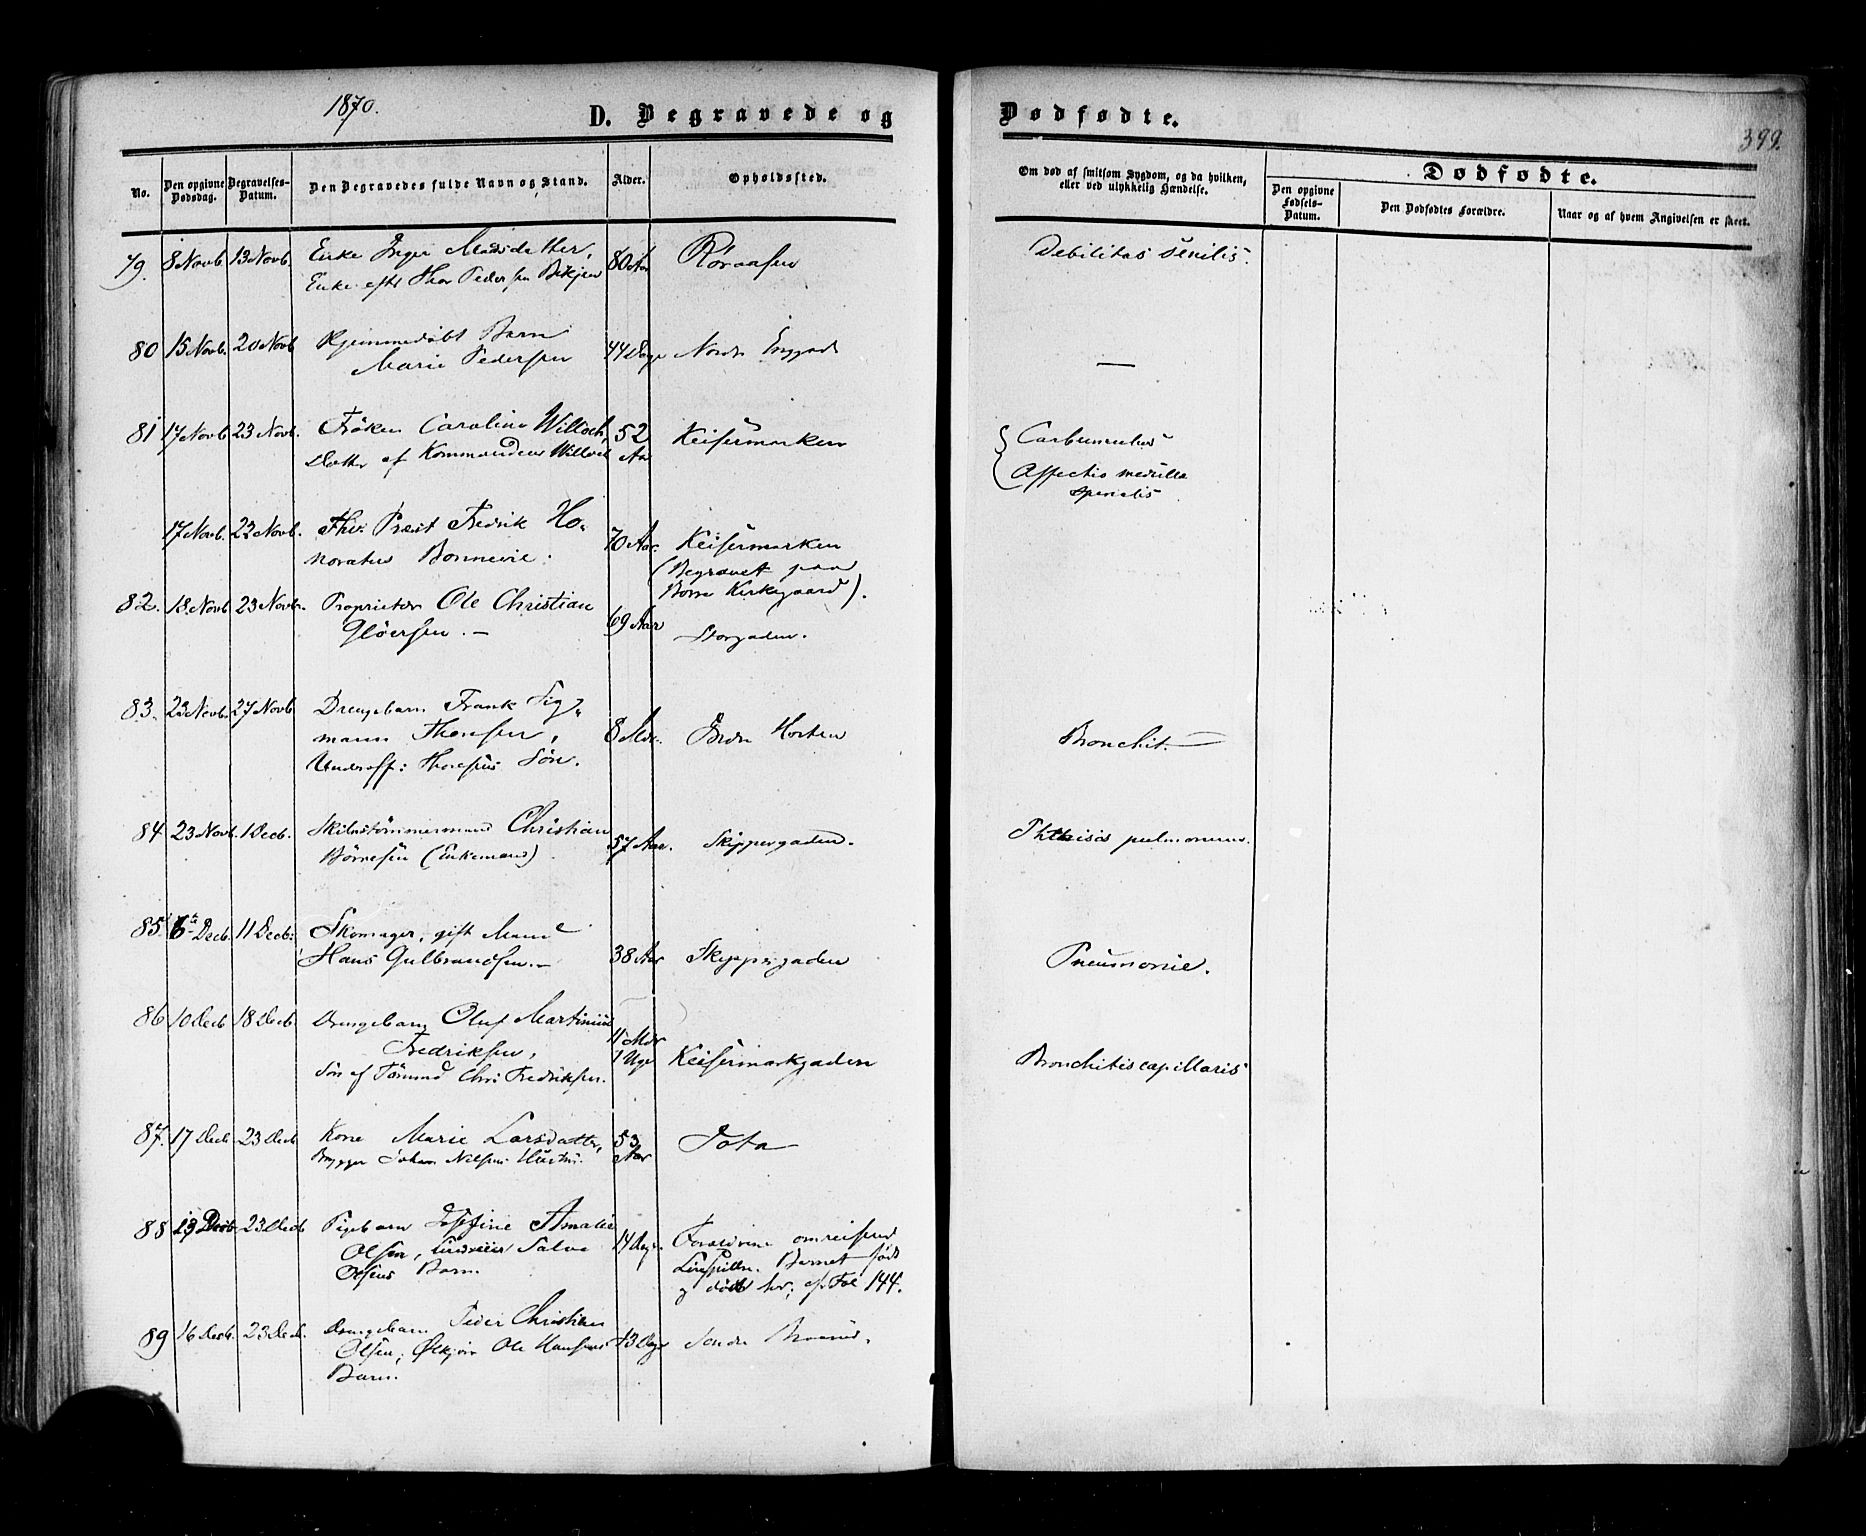 1870.
D. Begravede og
Dødfødte.
399.
No.
Den opgivne Dødsdag.
Begravelses-Datum.
Den Begravedes fulde Navn og Stand.
Alder.
Opholdssted.
Om død af smitsom Sygdom, og da hvilken, eller ved ulykkelig Hændelse.
Dødfødte.
Den opgivne Fødsels-Datum.
Den Dødfødtes Forældre.
Naar og af hvem Angivelsen er skeet.
79. 8 Novb. 13 Novb. Enke Inger Madsdatter, 80 Aar Røraasen Debilitas senilis.
Enke efter Thor Pedersen
80 15 Novb. 20 Novb Hjemmedøbt Barn 44 Dage Nordre Enggade —
Marie Pedersen
81 17 Novb 23 Novb. Frøken Caroline Willoch, 52 Keisermarken Carbunculus
Datter af Kommandeur Willoch Aar Affectio medulla
spinalis
17 Novb. 22 Novb. Præst Fredrik Ho-
noratus Bonnevie. 70 Aar Keisermarken
(Begravet paa
Borre Kirkegaard).
82. 18 Novb 23 Novb. Proprietær Ole Christian
Gløersen. — 69 Aar Storgaden.
83. 23 Novb. 27 Novb Drengebarn Frank Sig-
mann Thoresen, 8 Mdr. Indre Horten Bronchit. —
Underoff: Thoresens Søn.
84 23 Novb. 1 Decb. Skibstømmermand Christian
Børresen (Enkemand) 57 Aar. Skippergaden. Phthisis pulmonum.
85. 6te Decb. 11 Decb. Skomager, gift Mand
Hans Gulbrandsen. — 38 Aar Skippergaden Pneumonie.
86 10 Decb 18 Decb. Drengebarn Oluf Martinius
Fredriksen, 11 Mdr
Søn af Tømmd Chr. Fredriksen. 1 Uge Keisermarkgaden Bronchitis capillaris
87. 17 Decb 23 Decb Kone Marie Larsdatter, 53
Brygger Johan Nilsens Hustru. Aar Tota
88 13 Decb 23 Decb Pigebarn Josefine Amalie
Olsen, Salve 14 Dage Forældrene omreisende
Olsens Barn. Lirespillere. Barnet født
og død her; cf. Fol 144.
89 16 Decb. 23 Decb. Drengebarn Peder Christian
Olsen; Ole Hansens 13 Dage Søndre
Barn.